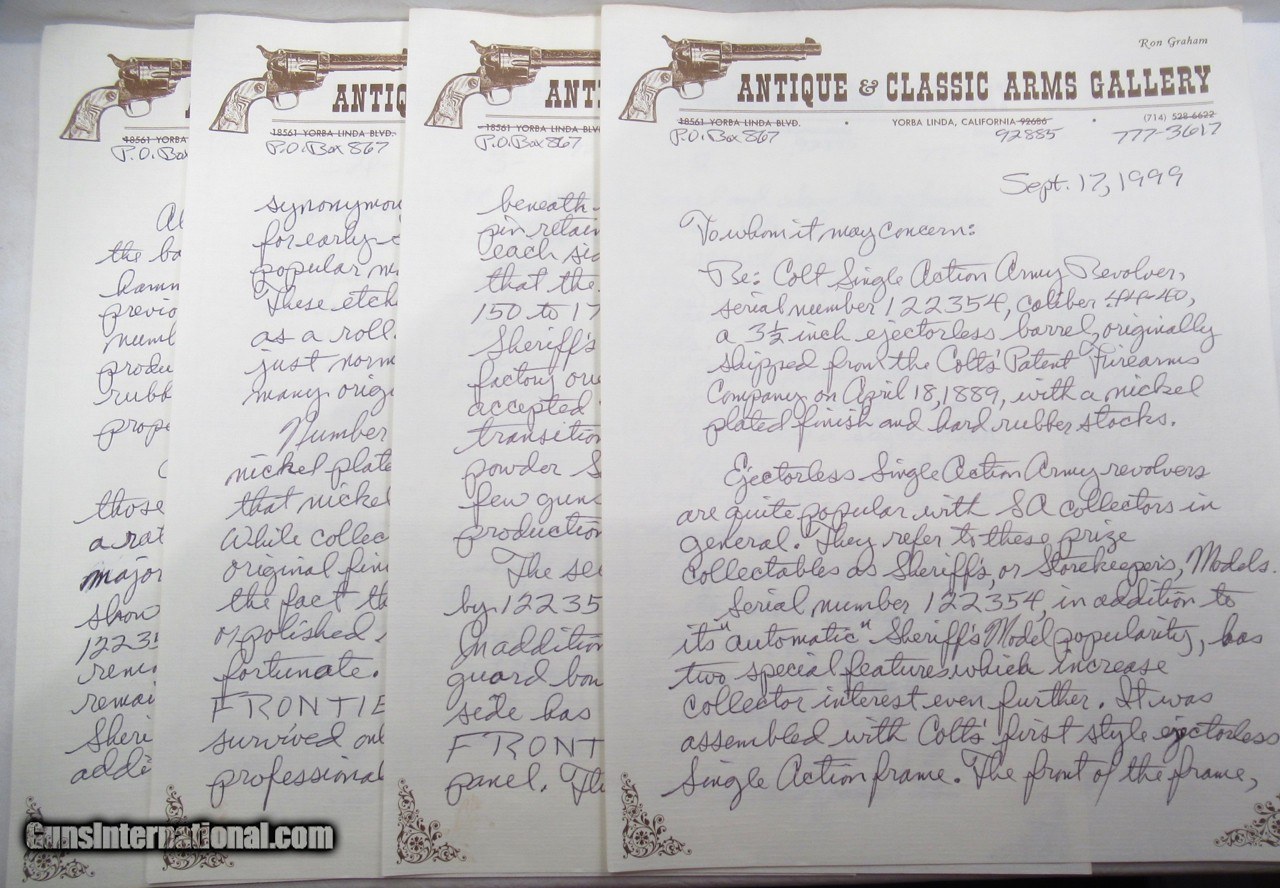 Ron Graham
ANTIQUE & CLASSIC ARMS GALLERY
18561 YORBA LINDA BLVD. • YORBA LINDA, CALIFORNIA 92686 • (714) 528-6622
P.O. Box 867 92885 777-3617
Sept. 17, 1999
To whom it may concern:
Re: Colt Single Action Army Revolver,
serial number 122354, caliber 44-40,
a 3½ inch ejectorless barrel, originally
shipped from the Colt's Patent Firearms
Company on April 18, 1889, with a nickel
plated finish and hard rubber stocks.
Ejectorless Single Action Army revolvers
are quite popular with SA collectors in
general. They refer to these prize
collectables as Sheriff's, or Storekeeper's, Models.
Serial number 122354, in addition to
its "automatic" Sheriff's Model popularity, has
two special features which increase
collector interest even further. It was
assembled with Colts' first style ejectorless
Single Action frame. The front of the frame,
ANT
18561 YORBA LINDA BLV
P.O. Box 867
beneath
pin retain
each sid
that the
150 to 17
Sheriff's
factory
accepted
transition
powder S
few guns
production
The se
by 12235
In addition
guard bow
side has
FRONT
panel. Th
ANTIQ
18561 YORBA LINDA BLVD.
P.O. Box 867
synonymou
for early
popular
These etch
as a roll
just norm
many orig
Number
nickel plate
that nickel
While collec
original fini
the fact th
or polished
fortunate.
FRONTIE
survived
professional
18561 YORBA
P.O. Box
Al
the ba
hamm
previo
numb
produ
rubb
prope
those
a rat
major
show
1223
remai
Sheri
addi
GunsInternational.com